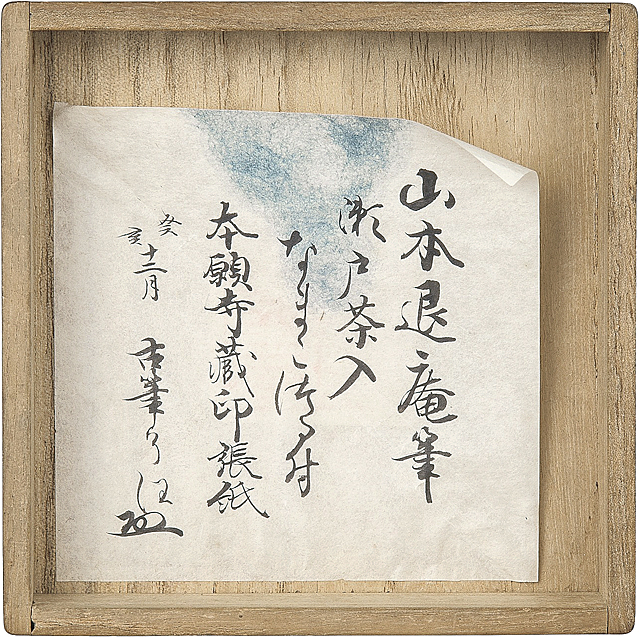 山本退庵筆
瀬戸茶入
なまこ
本願寺蔵印張紙
癸亥
十二月
古筆了信